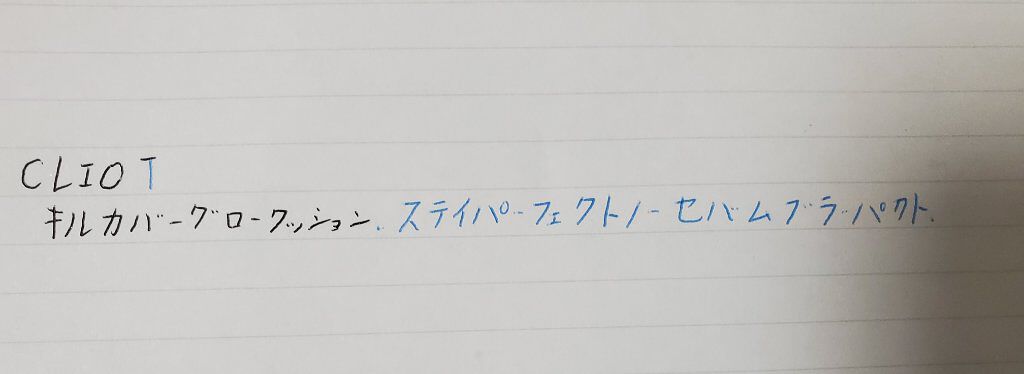 CLIO T
キルカバーグロークッション. ステイパーフェクトノーセバムブラーパクト.